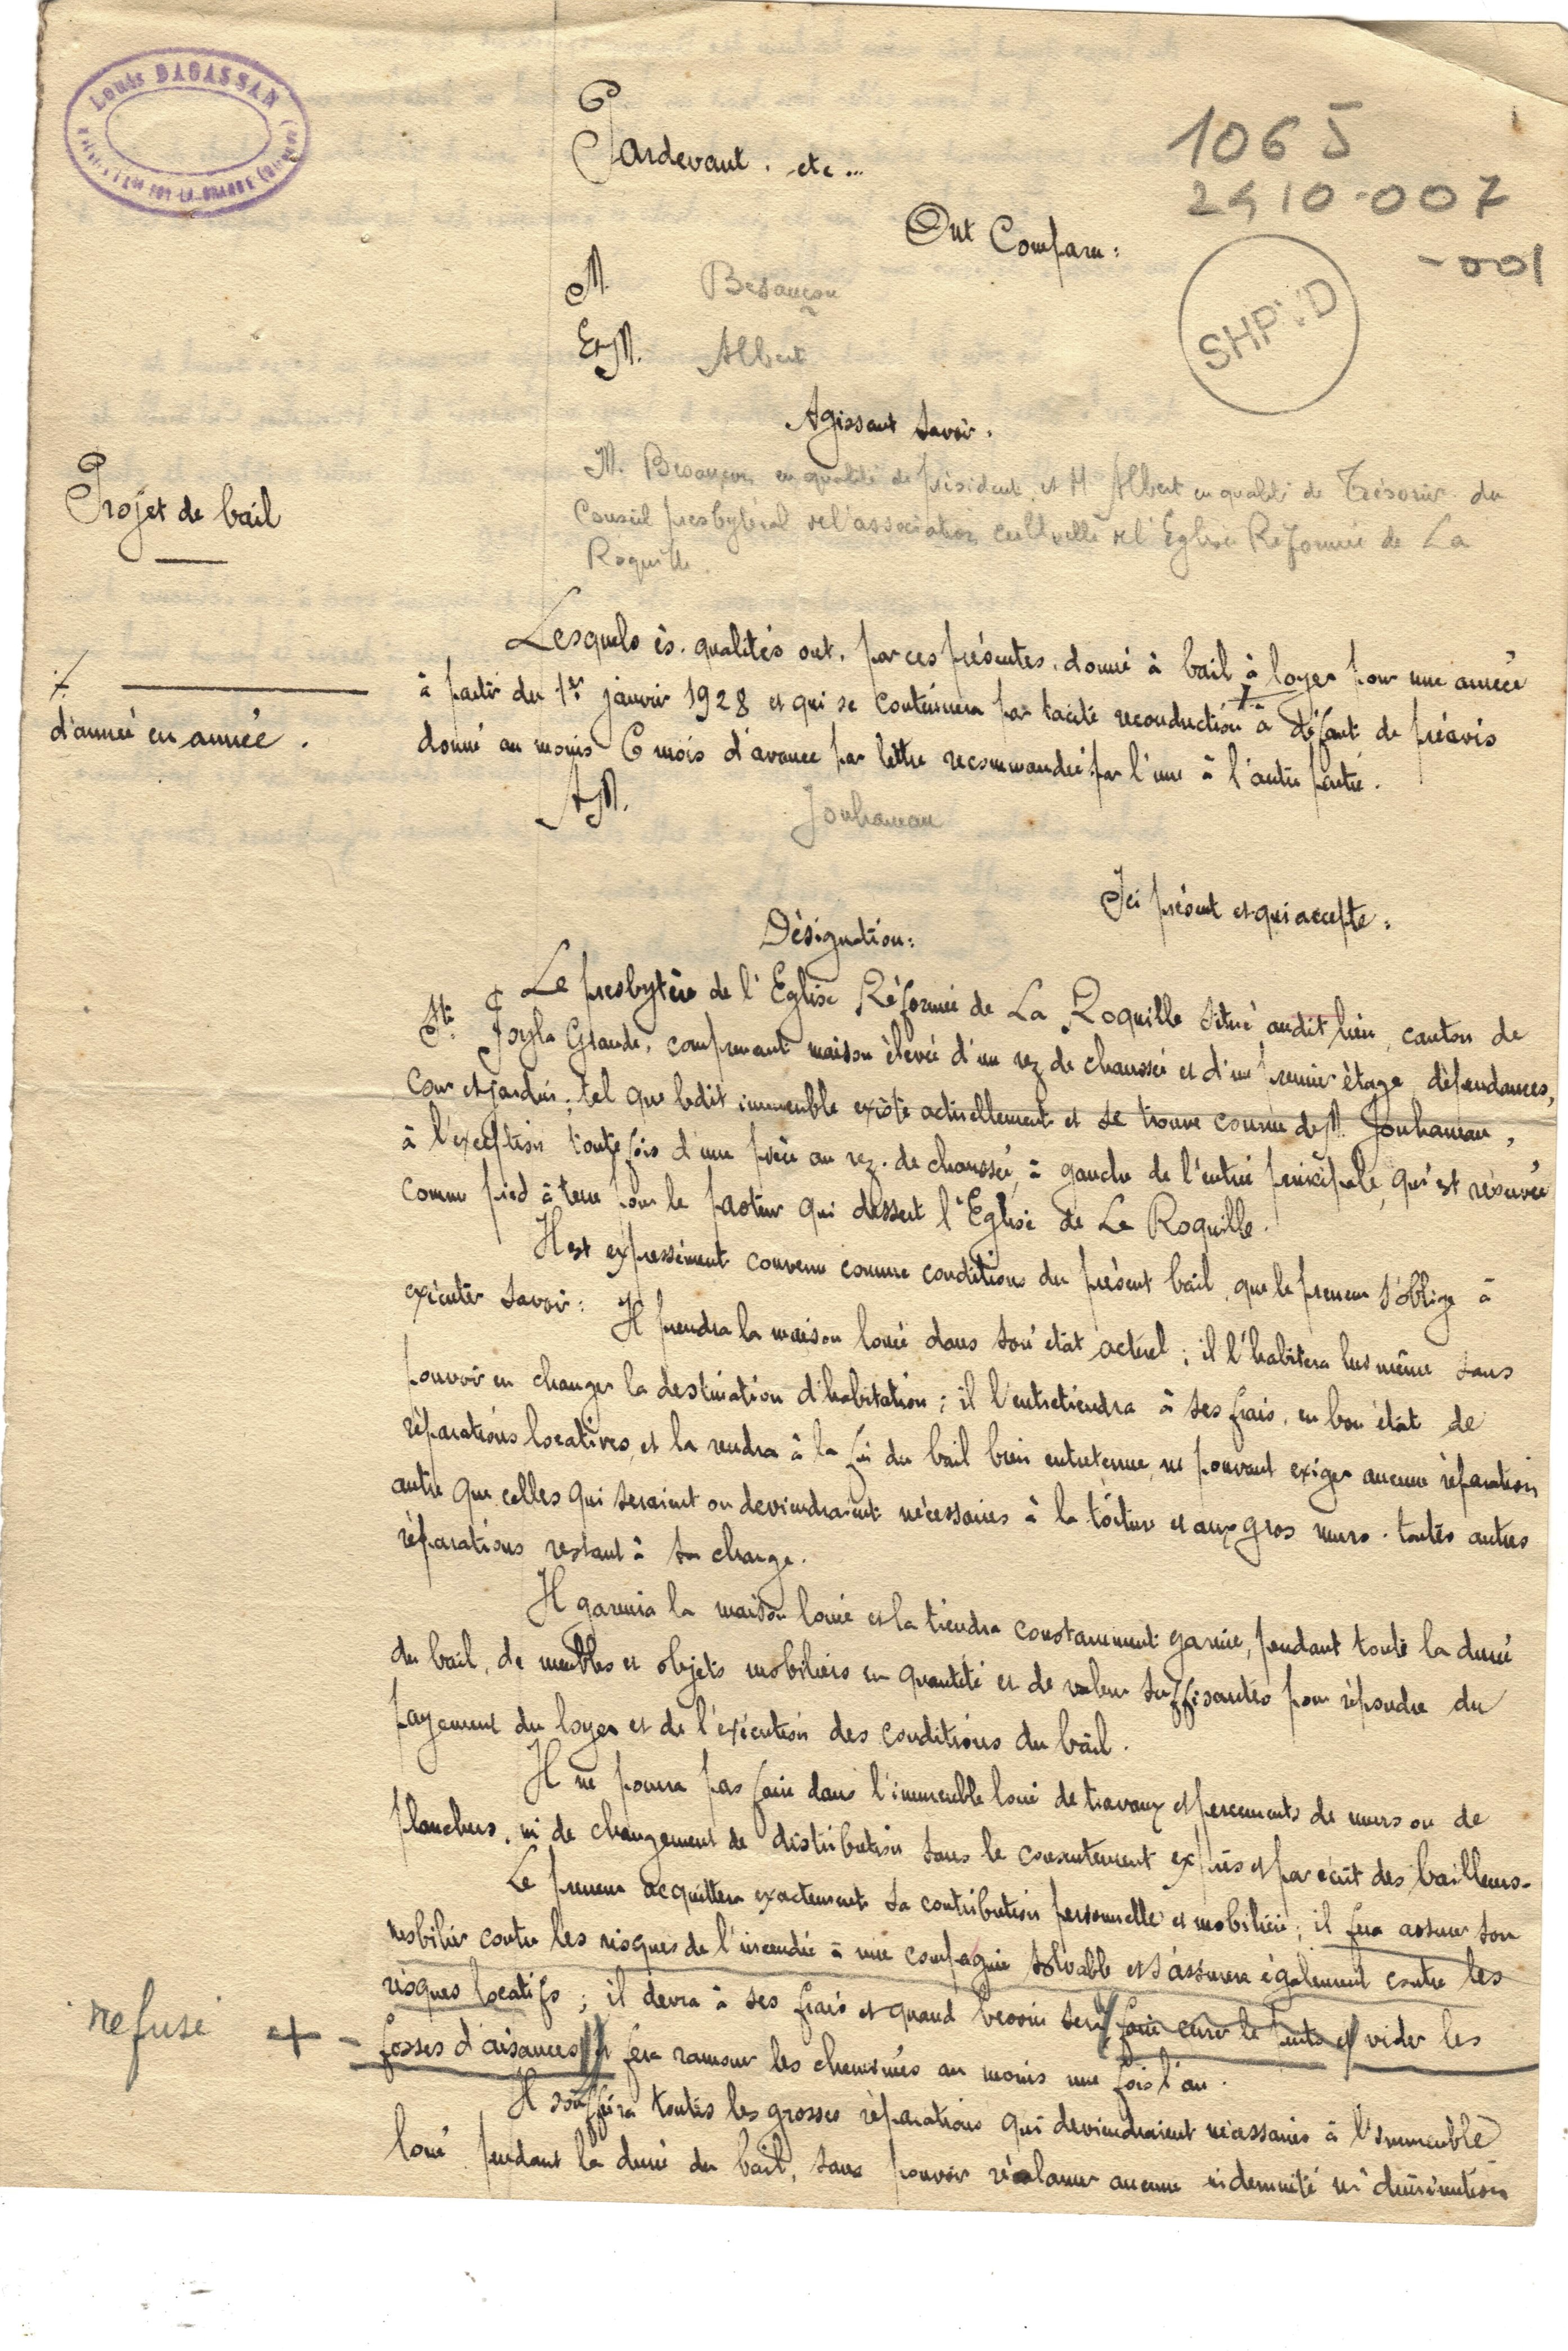 Louis DAGASSAN
STE FOY-LA-GRANDE
Pardevant. etc...
1065
2410-007
-001
SHPVD
Ont Comparu:
M. Besançon
Et M. Albert
Agissant savoir.
M. Besançon en qualité de président, et M Albert en qualité de Trésorier du
Conseil presbytéral de l'association cultuelle de l'Eglise Réformée de La
Roquille.
Projet de bail
Lesquels ès. qualités ont, par ces présentes, donné à bail à loyer pour une année
à partir du 1er janvier 1928 et qui se continuera par tacite reconduction + à défaut de préavis
donné au moins 6 mois d'avance par lettre recommandée par l'une à l'autre partie.
+
d'année en année.
A M. Jouhaneau
Ici présent et qui accepte:
Désignation:
Le presbytère de l'Eglise Réformée de La Roquille situé audit lieu, canton de
Ste Foy la Grande, comprenant maison élevée d'un rez de chaussée et d'un premier étage, dépendances,
cour et jardin; tel que ledit immeuble existe actuellement et se trouve connu de M. Jouhaneau,
à l'exception toutefois d'une pièce au rez-de chaussée, à gauche de l'entrée principale, qui est réservée
comme pied à terre pour le pasteur qui dessert l'Eglise de La Roquille.
Il est expressément convenu comme conditions du présent bail, que le preneur s'oblige à
exécuter savoir: Il prendra la maison louée dans son état actuel; il l'habitera lui même sans
pouvoir en changer la destination d'habitation; il l'entretiendra à ses frais, en bon état de
réparations locatives, et la rendra à la fin du bail bien entretenue, ne pouvant exiger aucune réparation
autre que celles qui seraient ou deviendraient nécessaires à la toiture et aux gros murs. toutes autres
réparations restant à sa charge.
Il garnira la maison louée et la tiendra constamment garnie, pendant toute la durée
du bail, de meubles et objets mobiliers en quantité et de valeur suffisantes pour répondre du
payement du loyer et de l'exécution des conditions du bail.
Il ne pourra pas faire dans l'immeuble loué de travaux et percements de murs ou de
planchers, ni de changement de distribution sans le consentement exprès et par écrit des bailleurs.
Le preneur acquittera exactement sa contribution personnelle et mobilière; il fera assurer son
mobilier contre les risques de l'incendie à une compagnie solvable et s'assurera également contre les
risques locatifs; il devra à ses frais et quand besoin sera faire curer le puits et vider les
refusé + - fosses d'aisances et fera ramoner les cheminées au moins une fois l'an.
Il souffrira toutes les grosses réparations qui deviendraient nécessaires à l'immeuble
loué pendant la durée du bail, sans pouvoir réclamer aucune indemnité ni diminution